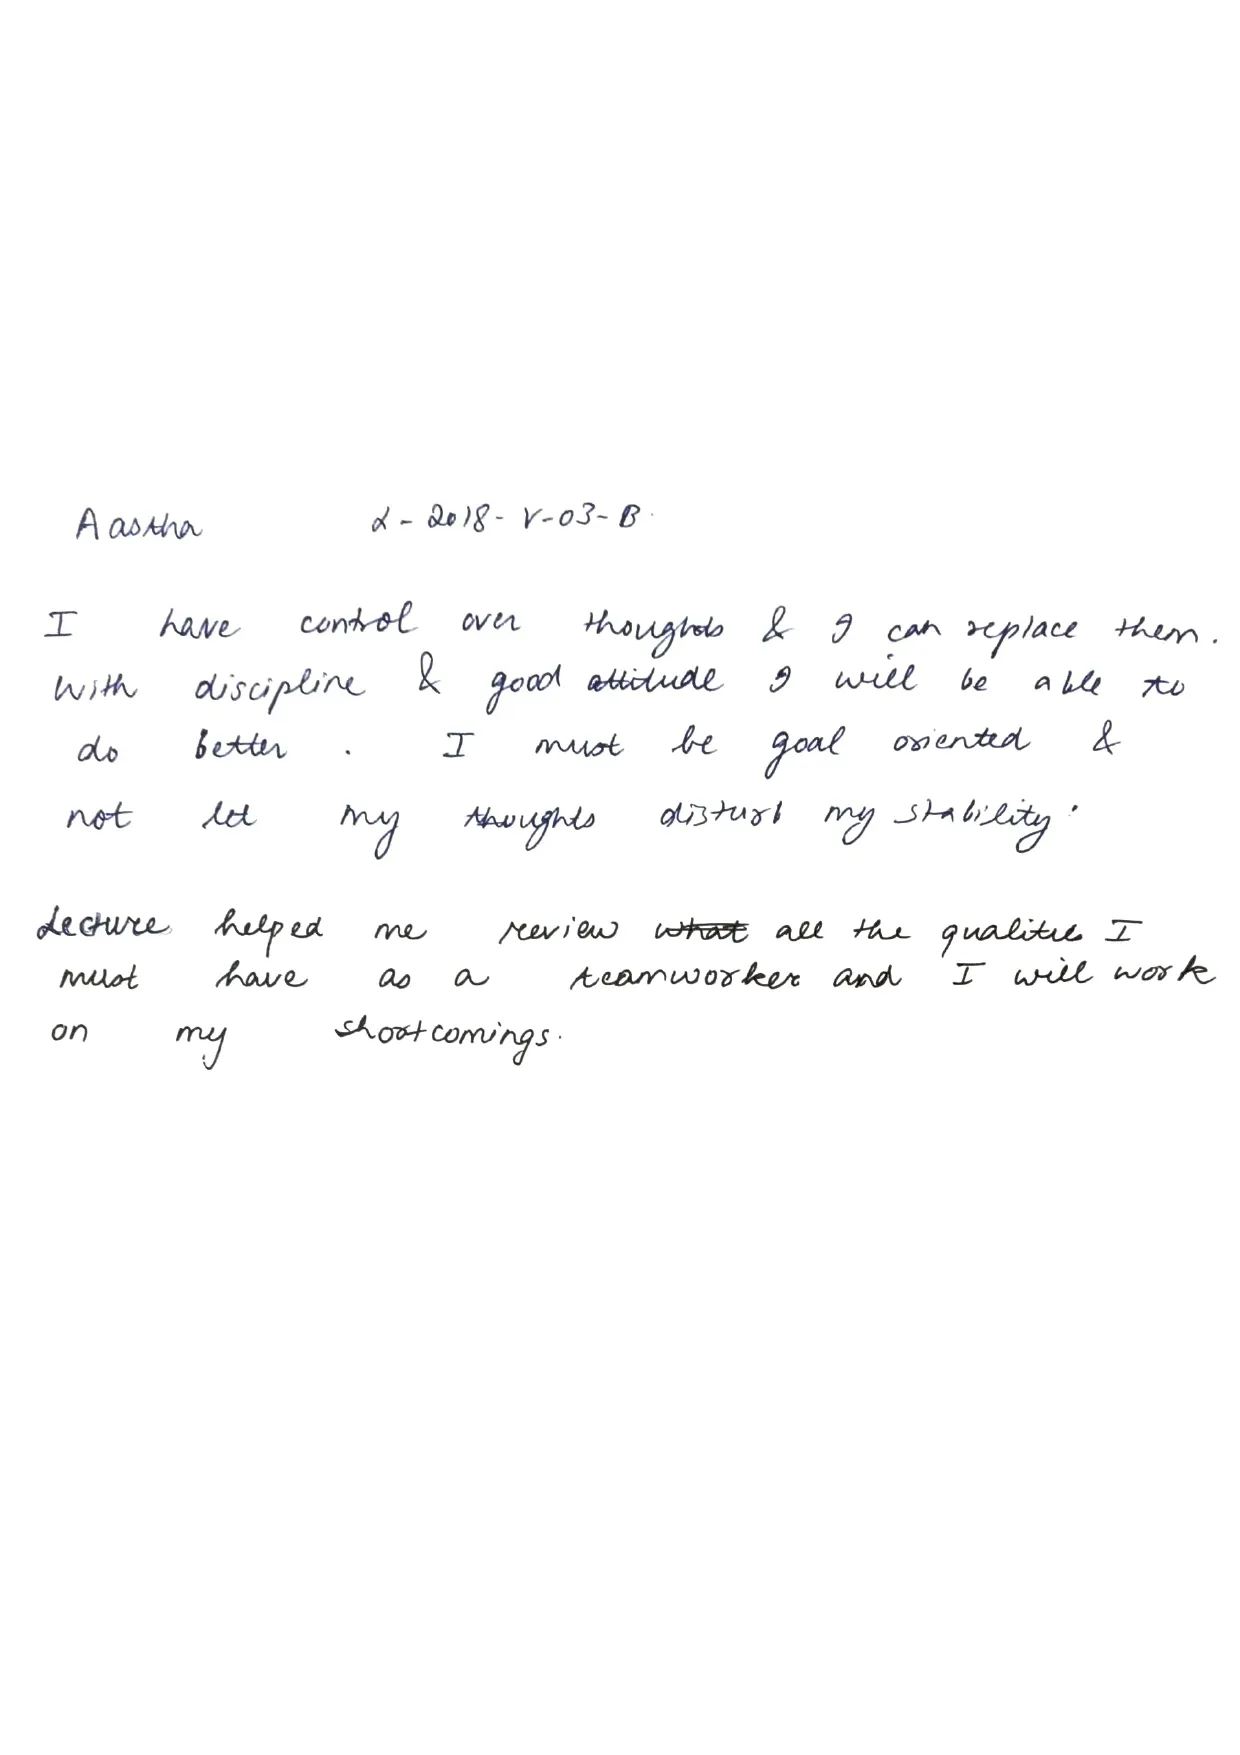 Aastha L-2018-V-03-B.
I have control over thoughts & I can replace them.
With discipline & good attitude I will be able to
do better. I must be goal oriented &
not let my thoughts disturb my stability.
Lecture helped me review what all the qualities I
must have as a teamworker and I will work
on my shortcomings.